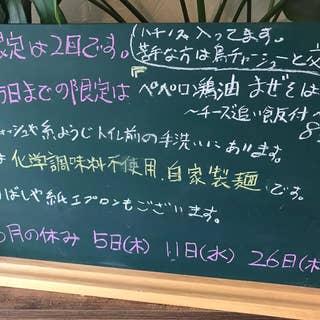 限定は2回です。
ハチノス入ってます。
苦手な方は鳥チャーシューと
日までの限定は ペペロ鶏油まぜそば
〜チーズ追い飯付〜
や糸ようじトイレ前の手洗いにあります。
は化学調味料不使用、自家製麺です。
ばしや紙エプロンもございます。
月の休み 5日(木) 11日(水) 26日(木